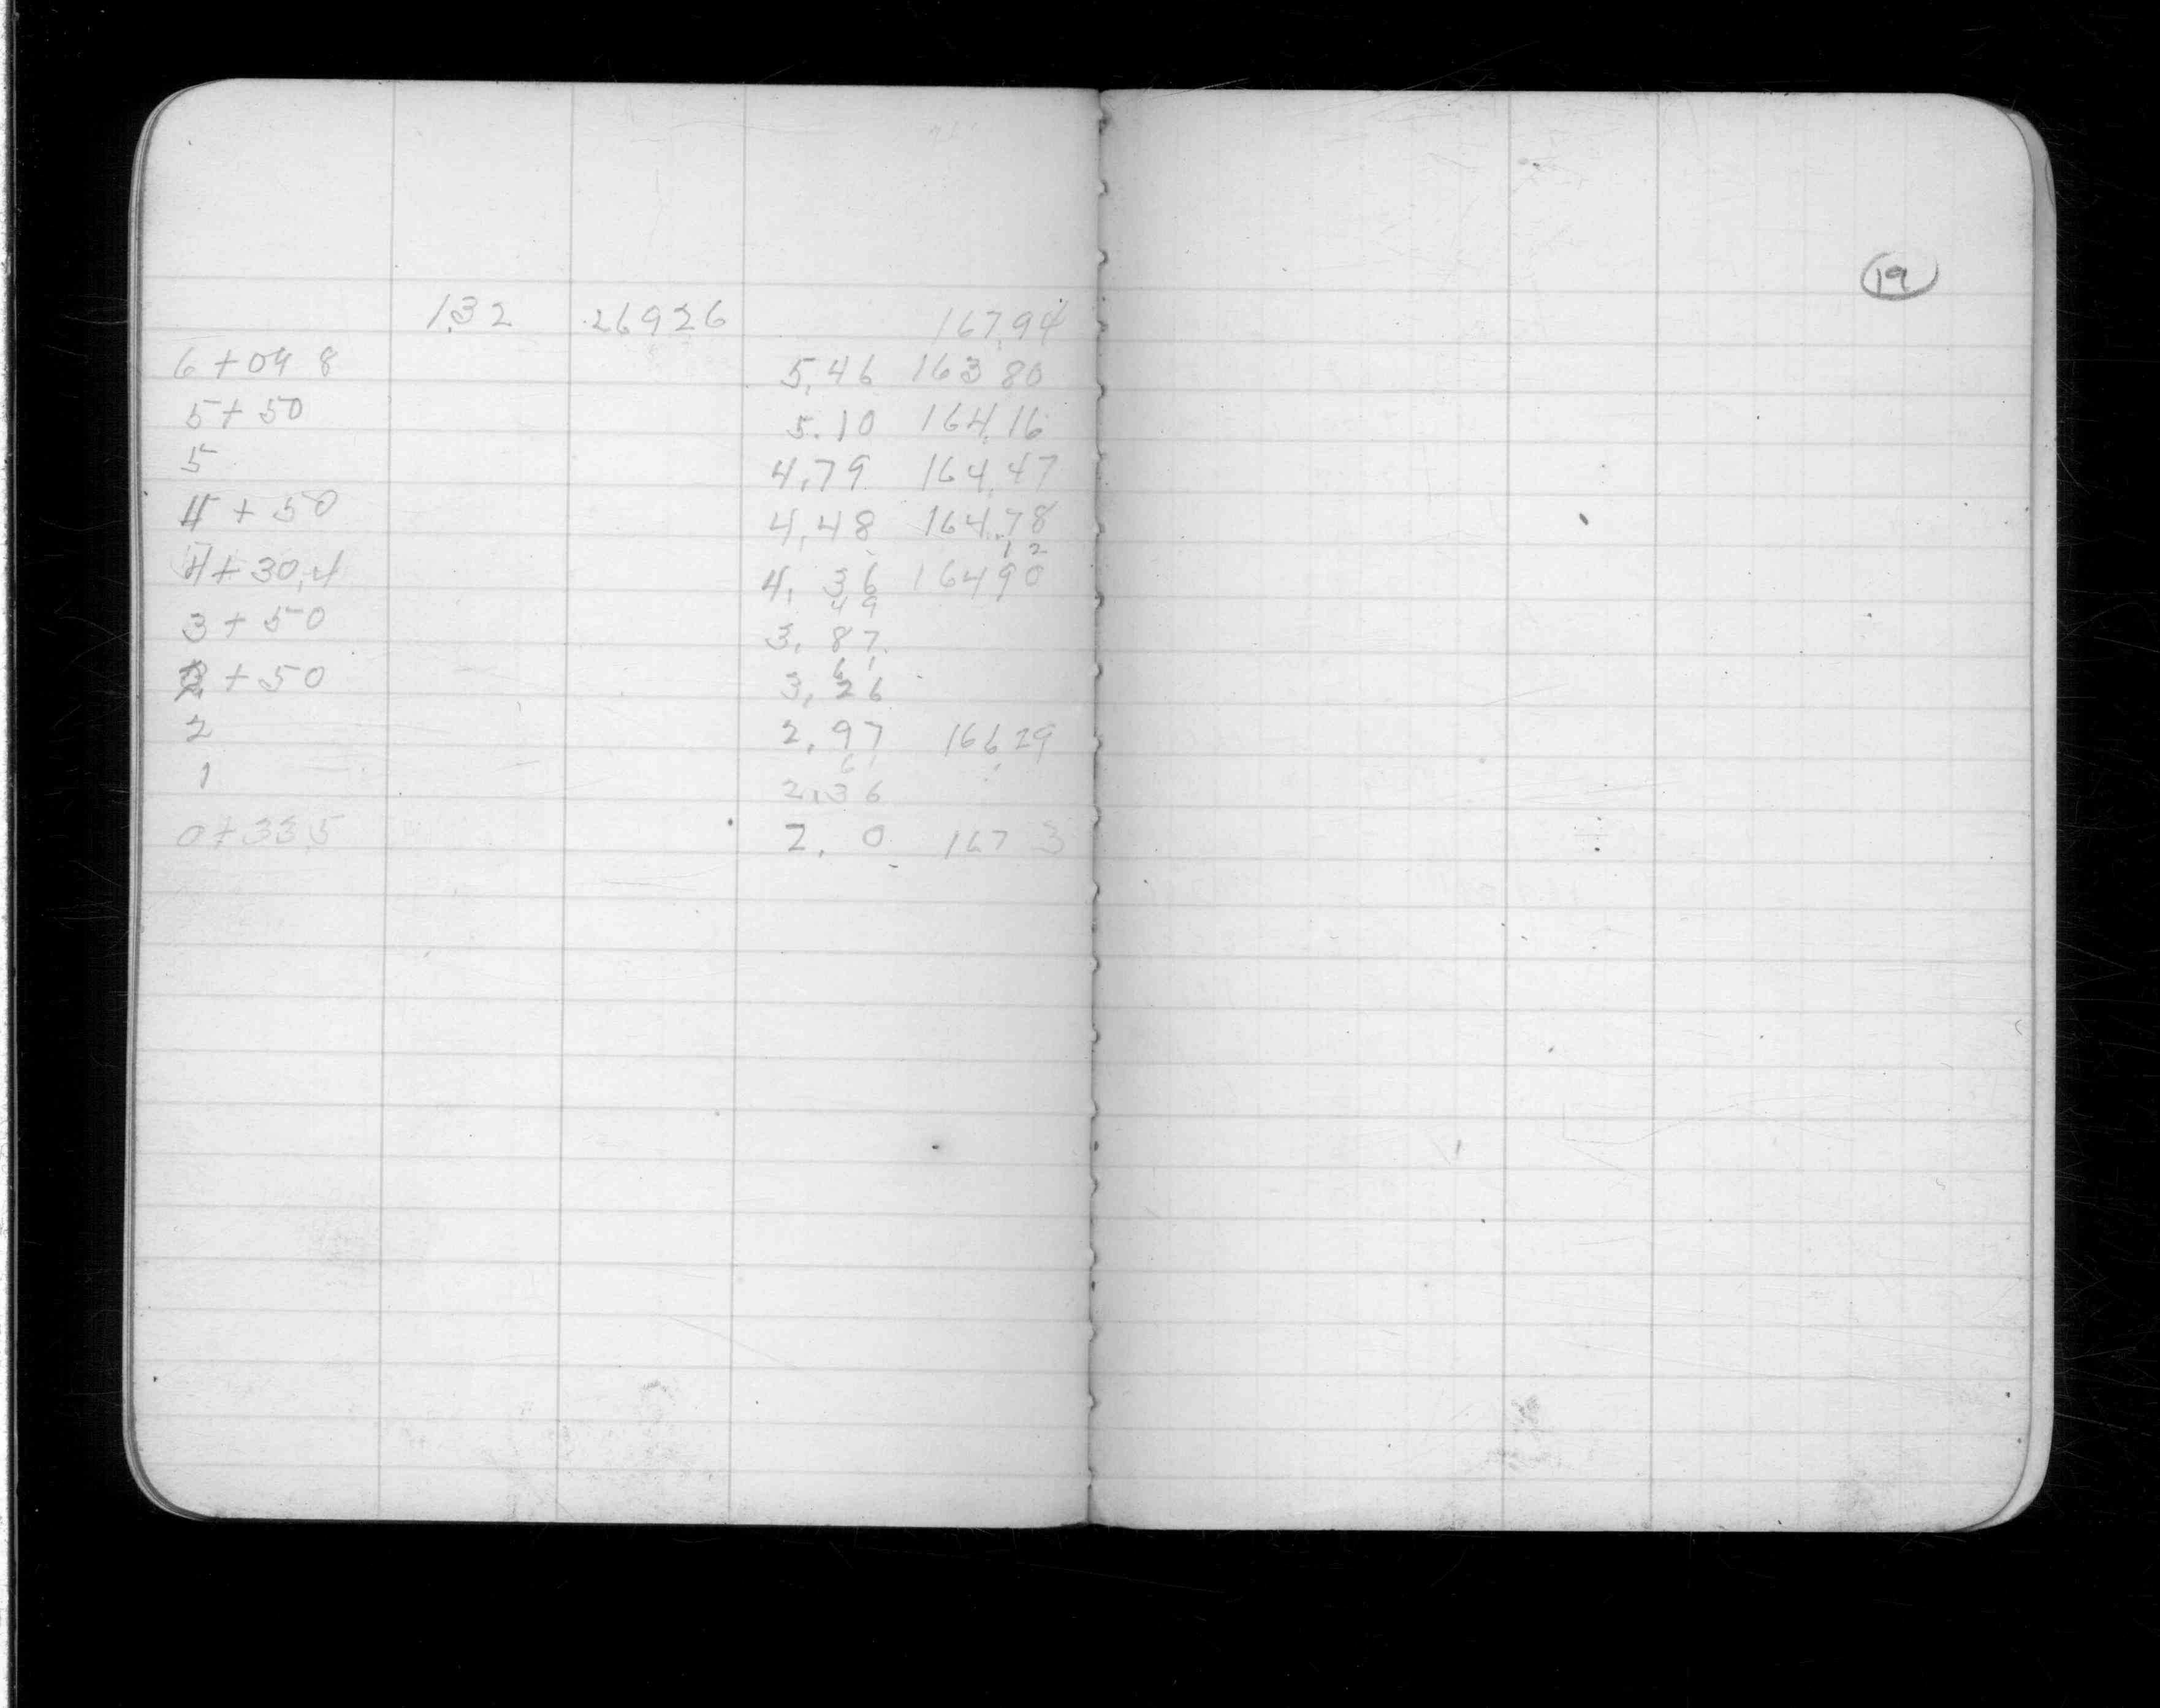 19
1.32 26926 167.94
6+04 8 5,46 163 80
5+50 5.10 164.16
5 4,79 164.47
4+50 4,48 164.78
1 2
4+30,4 4, 36 16490
4 9
3+50 3, 87
6 1
+50 3, 26
2 2,97 166 29
6
1 2,36
0+33.5 2, 0 167 3